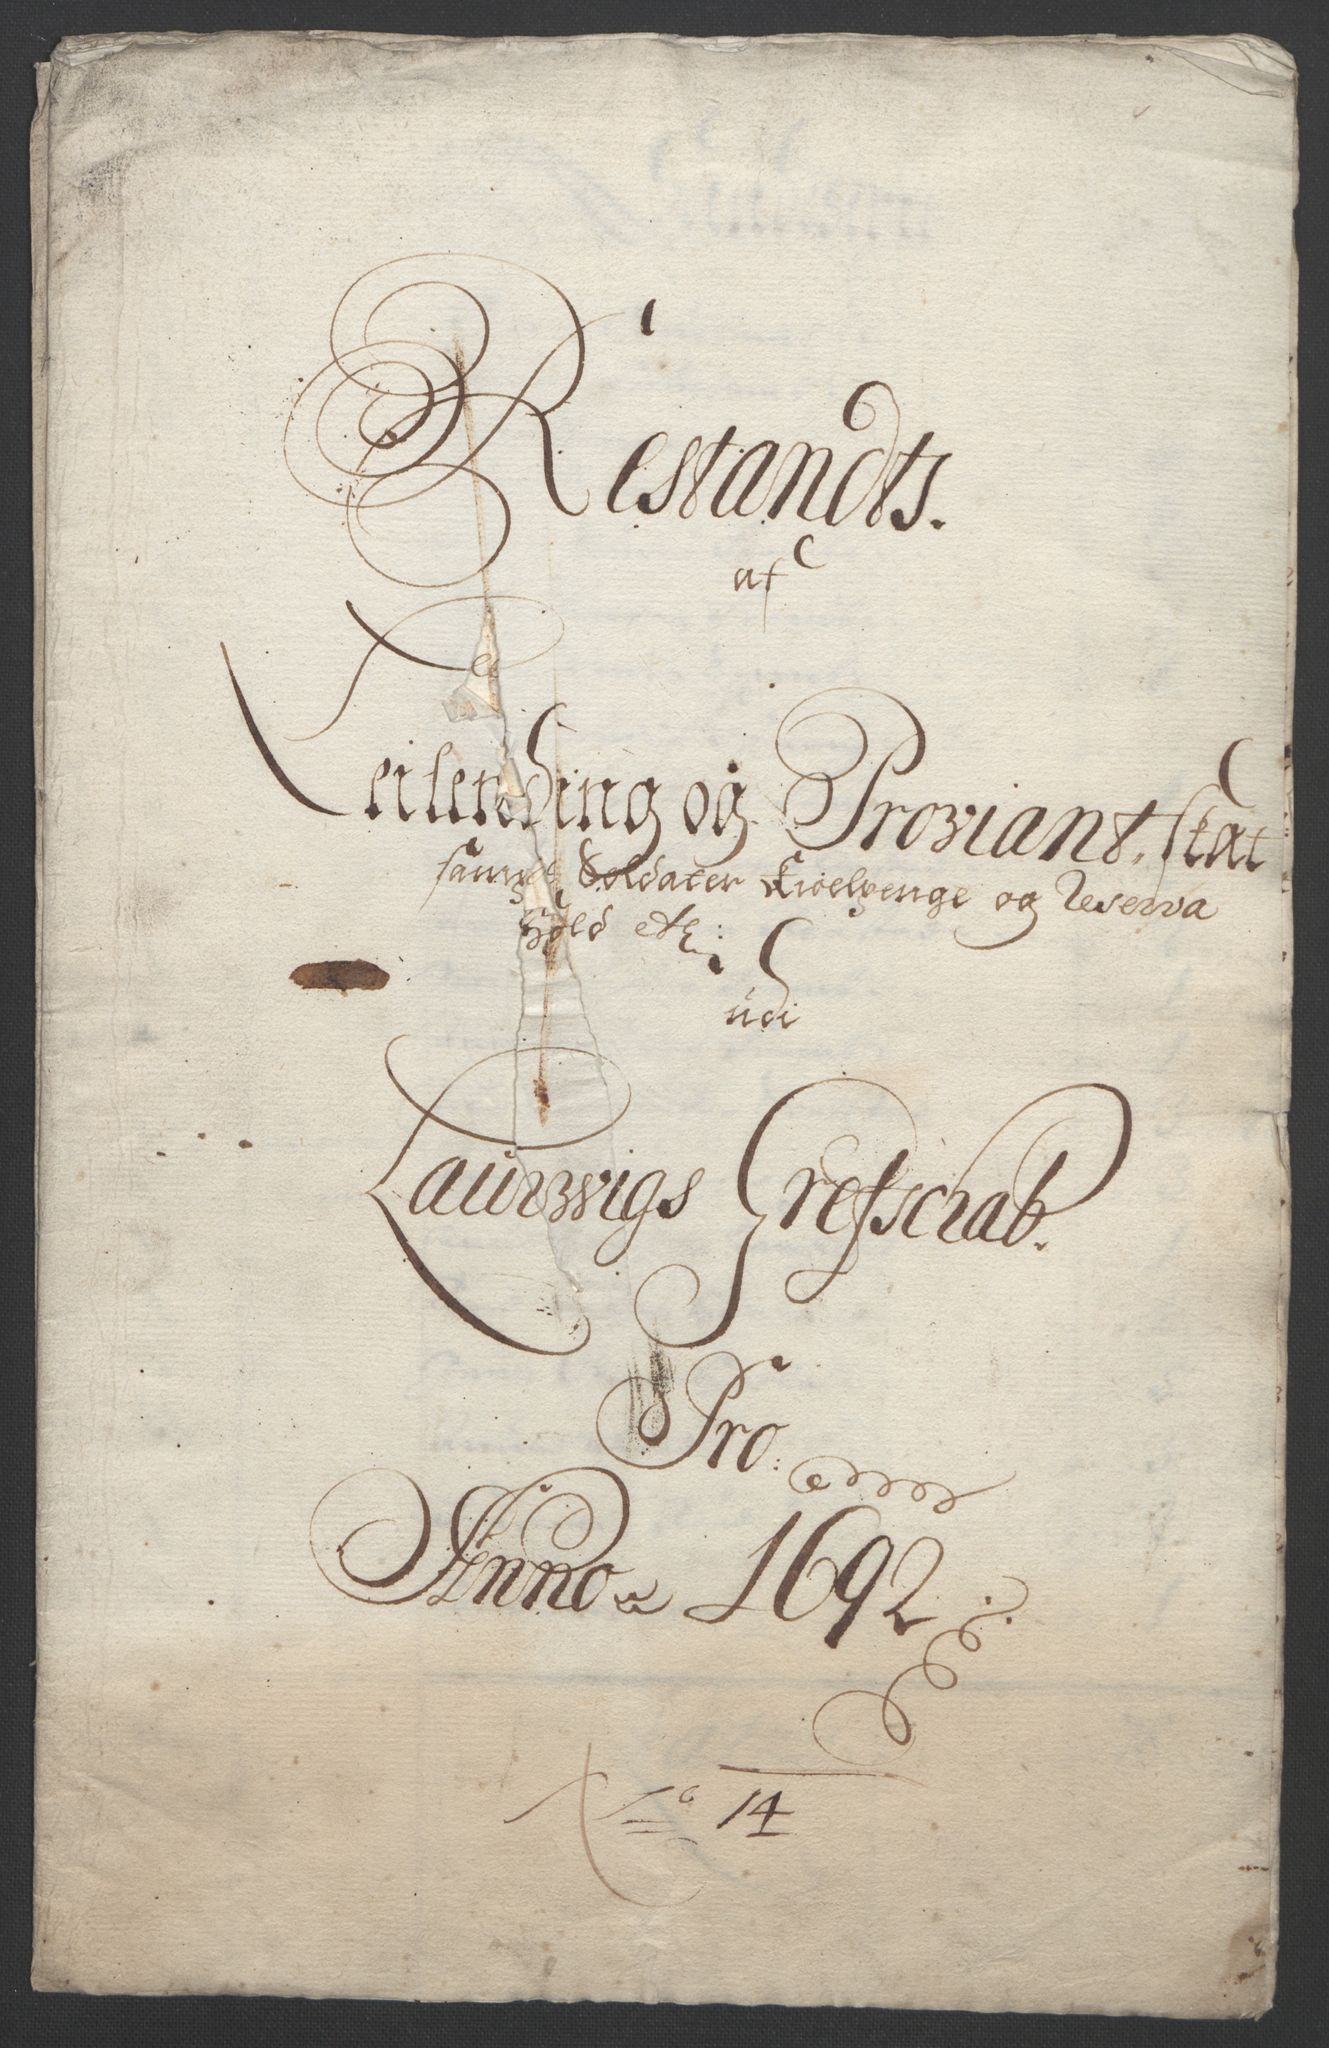 Restandts.
af
Leilending og Proviant skat
sampt Soldater Kioelpenge og Reserva
Hold etc:
udi
Laurwigs Grefscrab.
Pro.
Anno 1692
No 14